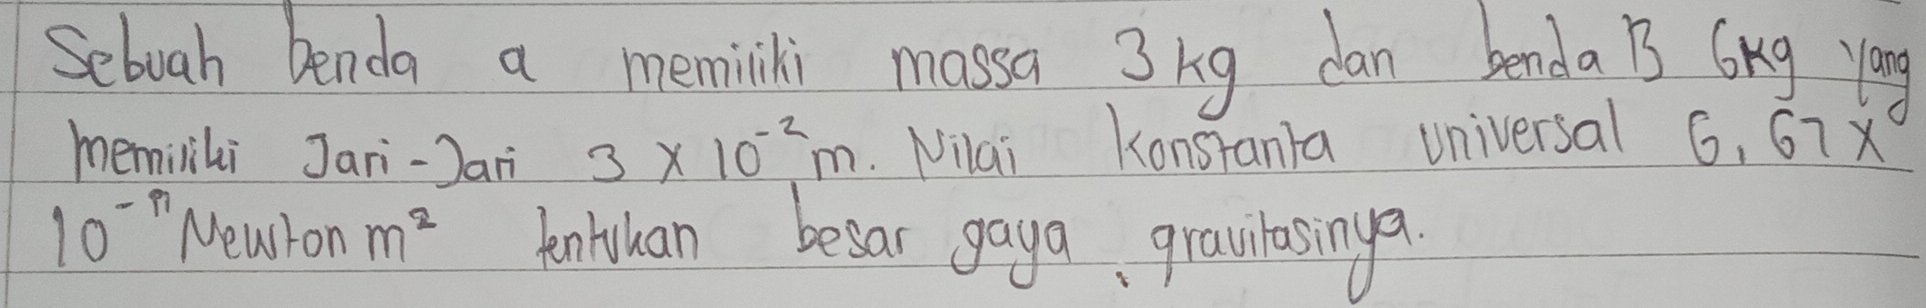 Sebuah benda a memiliki massa 3 kg dan benda B 6kg yang
memiliki Jari-Jari 3 x 10⁻² m. Nilai konstanta universal 6,67 x
10⁻¹¹ Newton m² tentukan besar gaya gravitasinya.